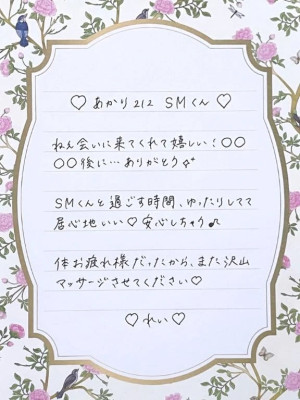 ♡ あかり212 SMくん ♡
ねえ会いに来てくれて嬉しい!〇〇
〇〇後に…ありがとう✧
SMくんと過ごす時間、ゆったりしてて
居心地いい♡安心しちゃう♪
体お疲れ様だったから、また沢山
マッサージさせてください♡
♡ れい ♡